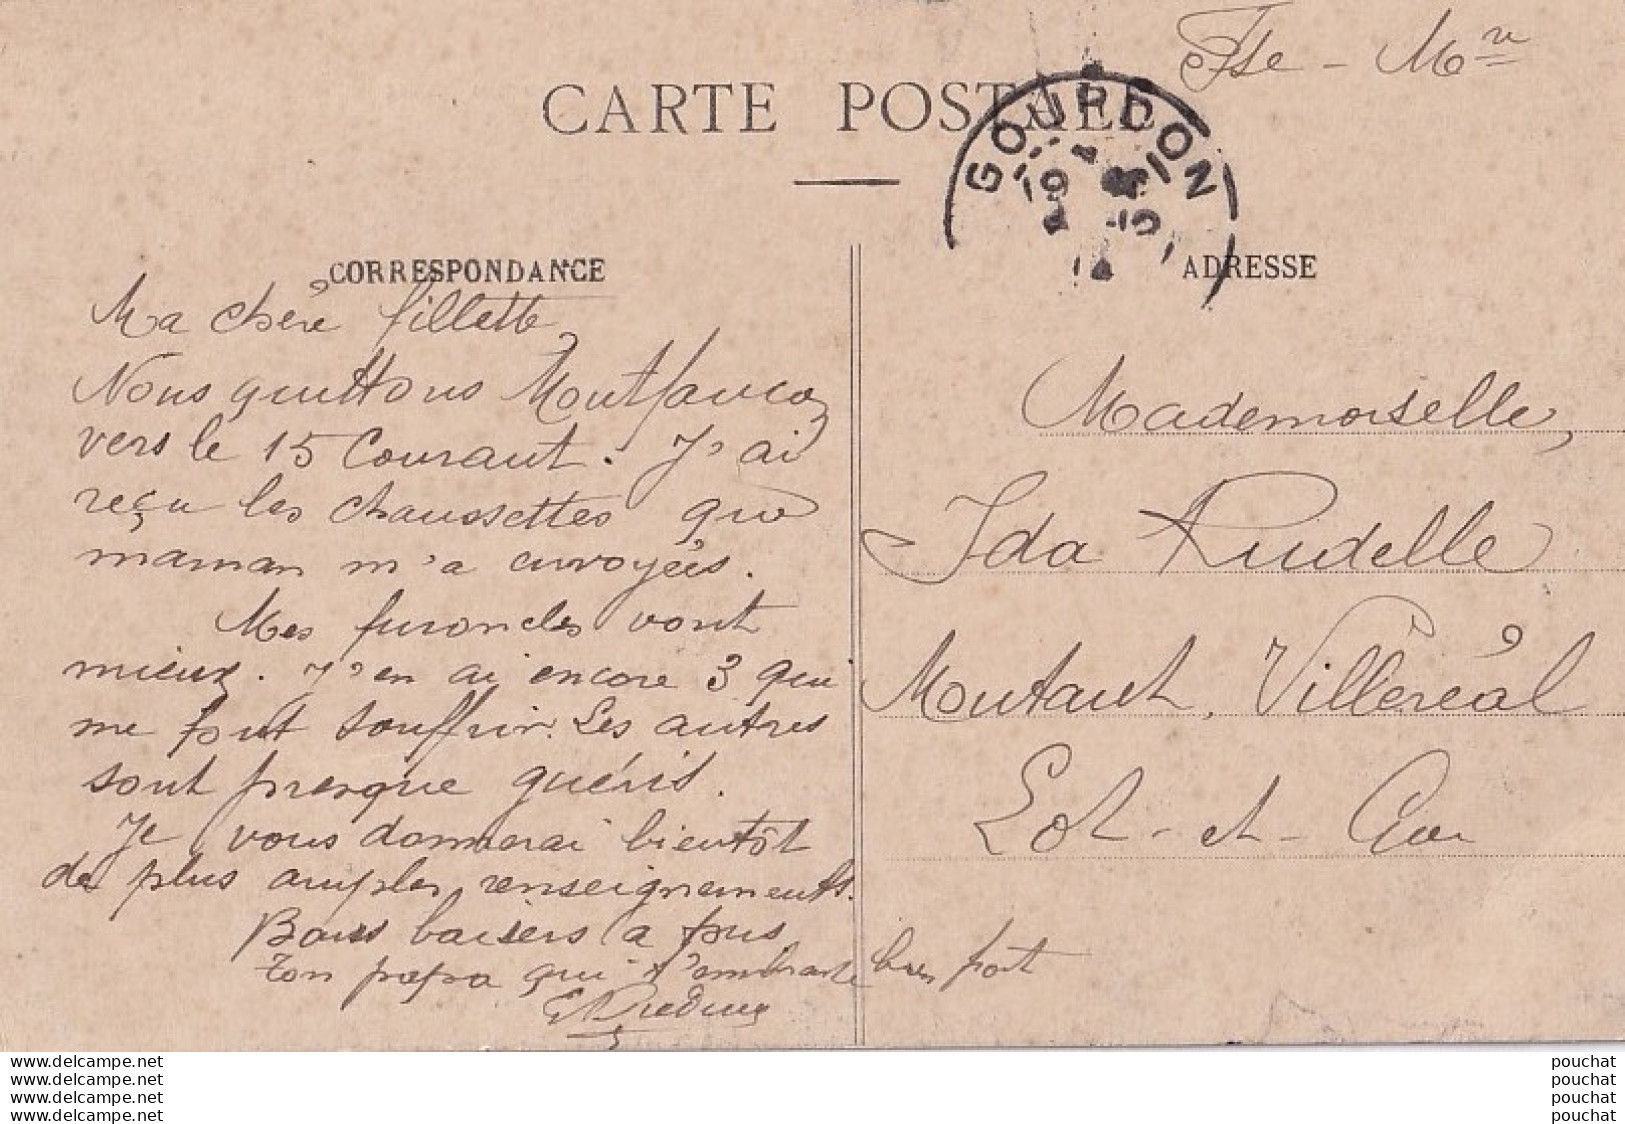 Fse - Mre
CARTE POSTALE
GOURDON
CORRESPONDANCE
Ma chère fillette,
Nous quittons Montfaucon
vers le 15 Courant. J'ai
reçu les chaussettes que
maman m'a envoyées.
Mes furoncles vont
mieux. J'en ai encore 3 qui
me font souffrir. Les autres
sont presque guéris.
Je vous donnerai bientôt
de plus amples renseignements.
Bons baisers à tous
Ton papa qui t'embrasse bien fort
ADRESSE
Mademoiselle,
Ida Rudelle
Montaut, Villeréal
Lot-et-Gar
www.delcampe.net
www.delcampe.net
www.delcampe.net
www.delcampe.net
pouchat
pouchat
pouchat
pouchat